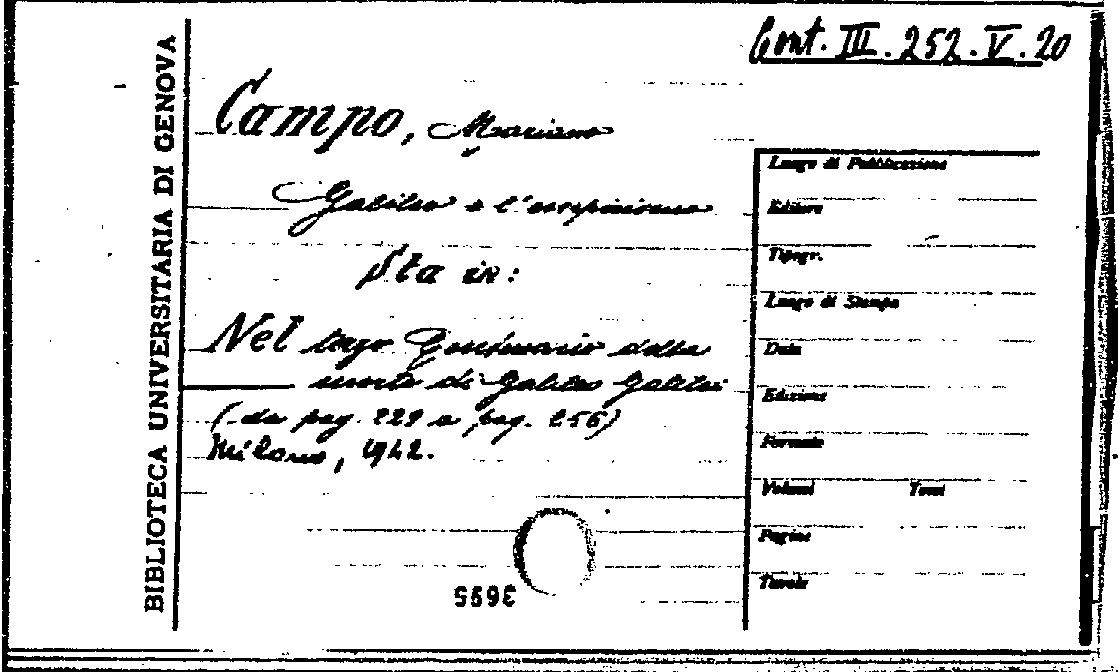 Cont. III. 252. V. 20
BIBLIOTECA UNIVERSITARIA DI GENOVA
Campo, Mariano
Galileo e l'empirismo
Sta in:
Nel terzo Centenario della
morte di Galileo Galilei
(da pag. 229 a pag. 256)
Milano, 1942.
Luogo di Pubblicazione
Editore
Tipogr.
Luogo di Stampa
Data
Edizione
Formato
Volumi Tomi
Pagine
Tavole